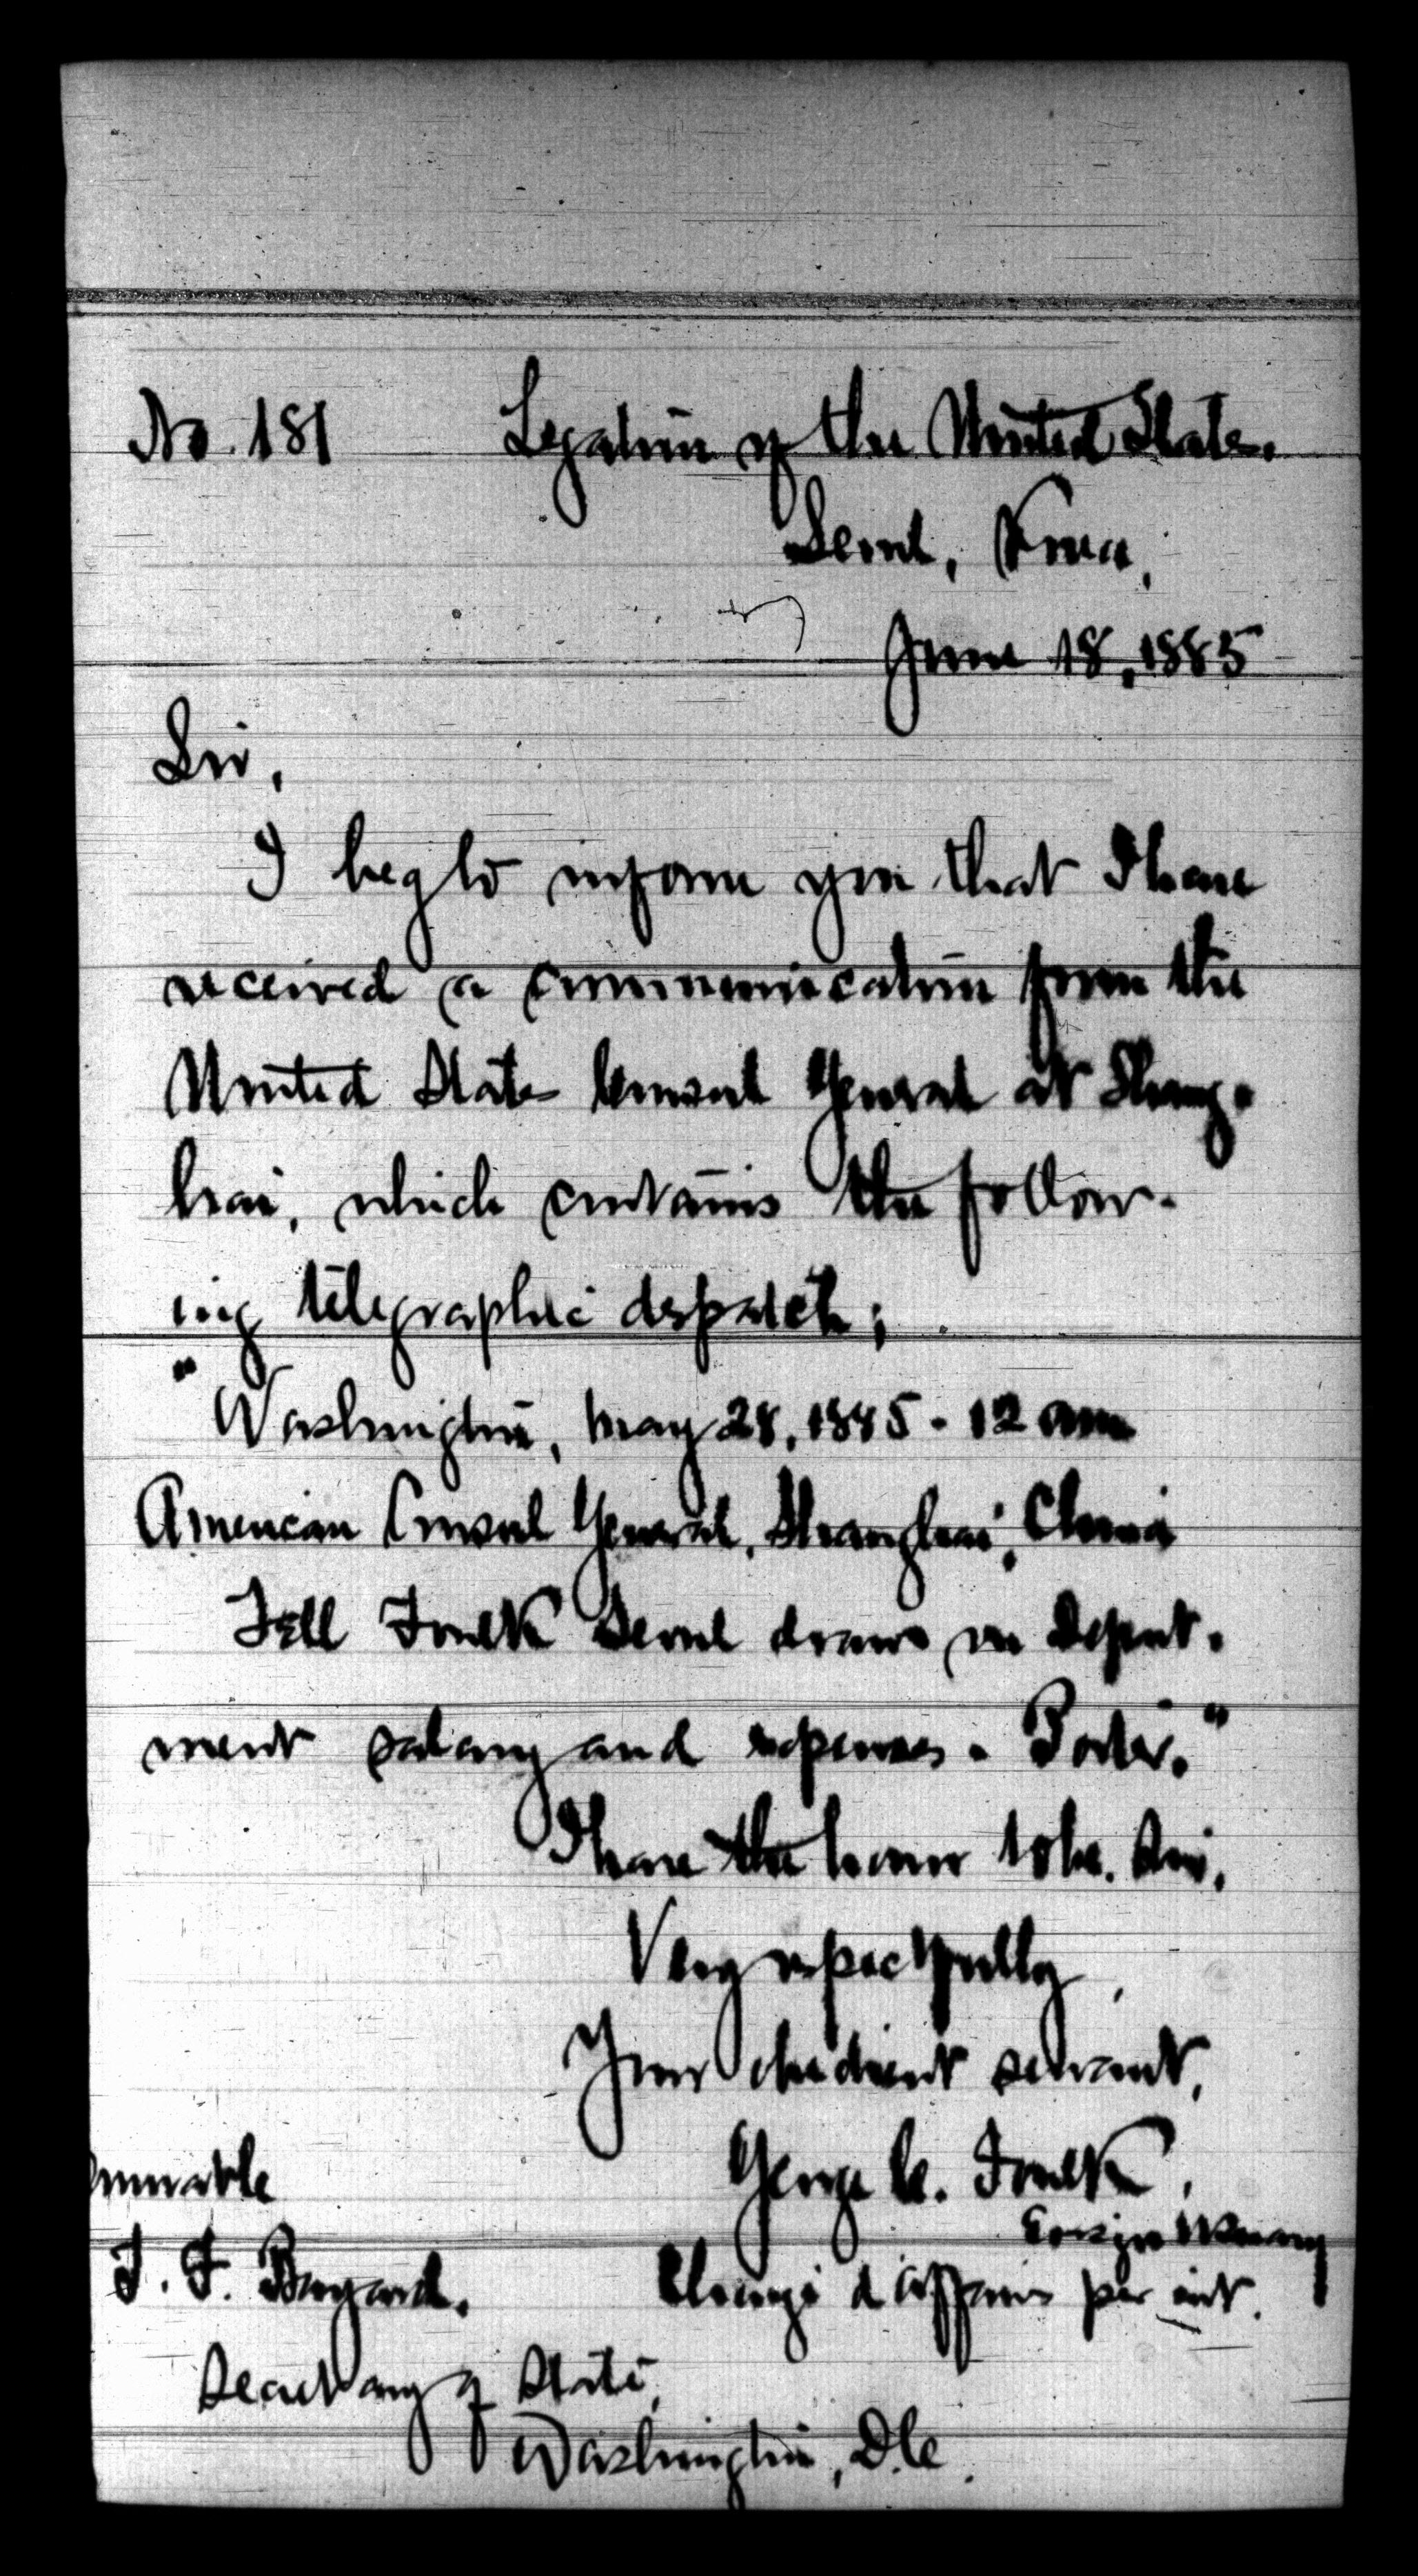 No. 181 Legation of the United States.
Seoul, Korea,
June 18, 1885
Sir,
I beg to inform you that I have
received a communication from the
United States Consul General at Shang-
hai, which contains the follow-
ing telegraphic despatch;
"Washington, May 28, 1885 - 12 am
American Consul General, Shanghai, China
Tell Foulk Seoul draws on Depart-
ment salary and expenses. Porter."
I have the honor to be, Sir,
Very respectfully,
Your obedient servant,
George C. Foulk,
Ensign U.S. Navy
Chargé d'Affaires per int.
onorable
T. F. Bayard,
Secretary of State,
Washington, D.C.